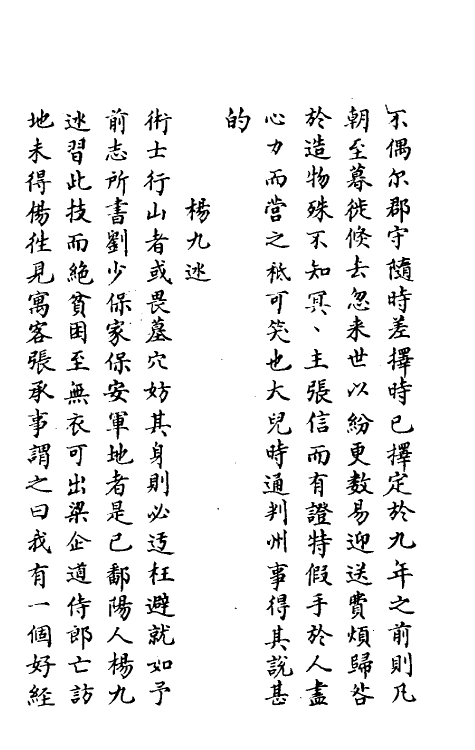 不偶尔郡守隨時差擇時已擇定於九年之前則凡
朝至暮徙倏去忽来世以紛更数易迎送費煩歸咎
於造物殊不知冥、主張信而有證特假手於人盡
心力而営之祗可笑也大兒時通判州事得其說甚
的
楊九迷
術士行山者或畏墓穴妨其身則必迃枉避就如予
前志所書劉少保家保安軍地者是已鄱陽人楊九
迷習此技而絶貧困至無衣可出梁企道侍郎亡訪
地未得傷徃見寓客張承事謂之曰我有一個好經